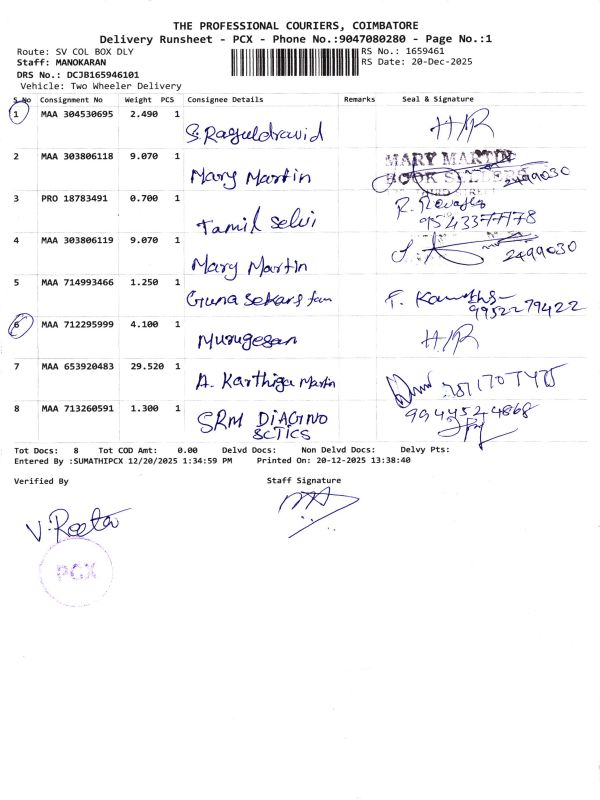 THE PROFESSIONAL COURIERS, COIMBATORE
Delivery Runsheet - PCX - Phone No.:9047080280 - Page No.:1
Route: SV COL BOX DLY RS No.: 1659461
Staff: MANOKARAN RS Date: 20-Dec-2025
DRS No.: DCJB165946101
Vehicle: Two Wheeler Delivery
S No Consignment No Weight PCS Consignee Details Remarks Seal & Signature
1 MAA 304530695 2.490 1 S. Raguldravid H/R
2 MAA 303806118 9.070 1 Mary Martin MARY MARTIN
BOOK SELLERS 2499030
3 PRO 18783491 0.700 1 Tamil Selvi
9543377778
4 MAA 303806119 9.070 1 Mary Martin 2499030
5 MAA 714993466 1.250 1 Guna
9952279422
6 MAA 712295999 4.100 1 Murugesan H/R
7 MAA 653920483 29.520 1 A. Karthiga Martin
8 MAA 713260591 1.300 1 SRM DIAGNO 9944524868
SCTICS
Tot Docs: 8 Tot COD Amt: 0.00 Delvd Docs: Non Delvd Docs: Delvy Pts:
Entered By :SUMATHIPCX 12/20/2025 1:34:59 PM Printed On: 20-12-2025 13:38:40
Verified By Staff Signature
V. Reeta
PCX